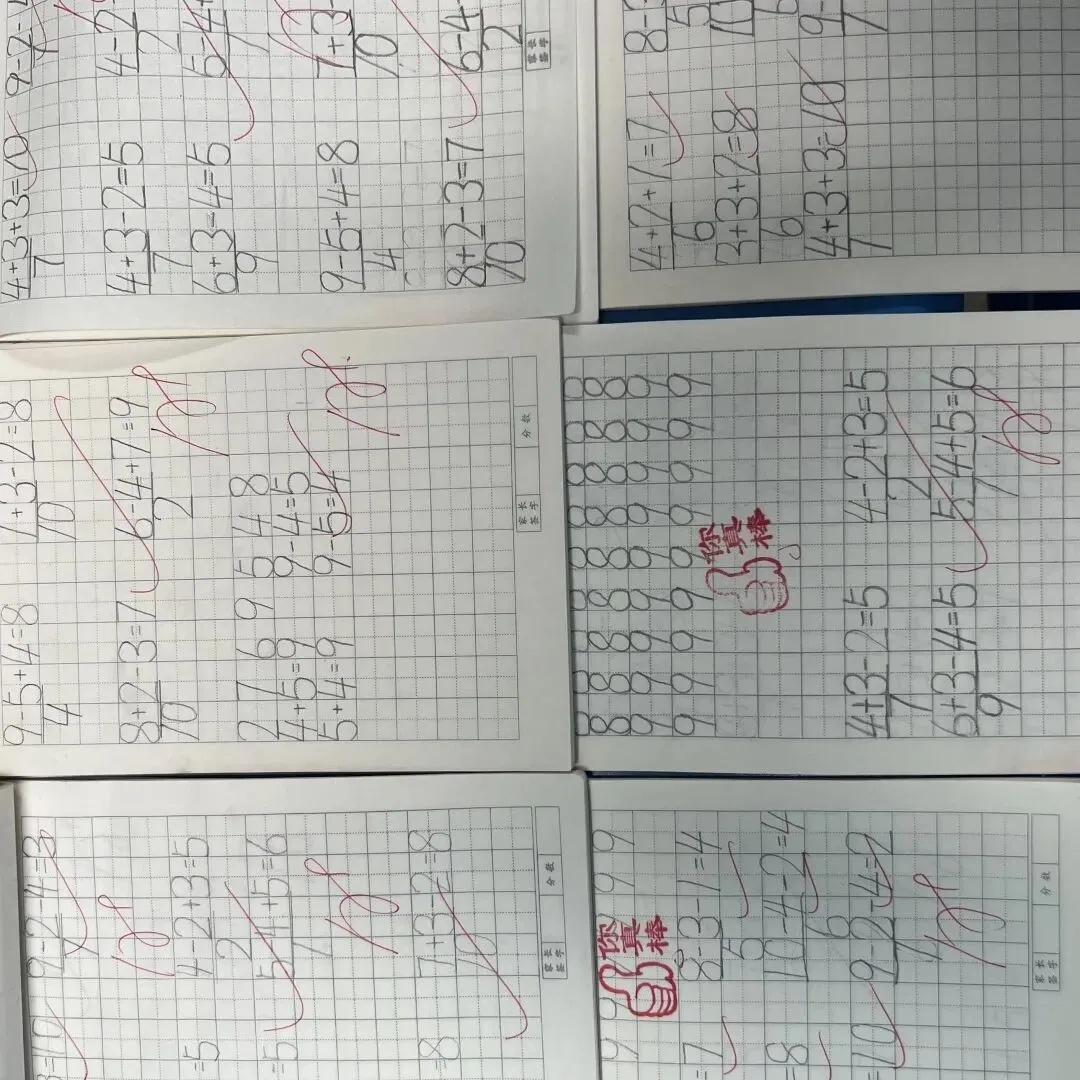 4+3+3=10 9-2-
7
4+3-2=5 4-2
7 2
6+3-4=5 5-4+
9 1
9-5+4=8 7+3-
4 10
8+2-3=7 6-4
10 2
家长签字
4+2+1=7 8-3
6 5
3+3+2=8 10
6
4+3+3=10 9-
7 7
9-5+4=8 7+3-2=8
4 10
8+2-3=7 6-4+7=9
10 2
2 7 6 9 5 4 8
4+5=9 9-4=5
5+4=9 9-5=4
家长签字 分数
8 8 8 8 8 8 8 8 8
8 8 8 8 8 8 8 8 8
9 9 9 9 9 9 9 9 9
9 9 9 9 9 9 9 9 9
你真棒
4+3-2=5 4-2+3=5
7 2
6+3-4=5 5-4+5=6
9 1
3=10 9-2-4=3
7
=5 4-2+3=5
2
=5 5-4+5=6
1
=8 7+3-2=8
10
家长签字 分数
9 9 9 9 9
你真棒
=7 8-3-1=4
5
=8 10-4-2=4
6
=10 9-2-4=2
7
家长签字 分数